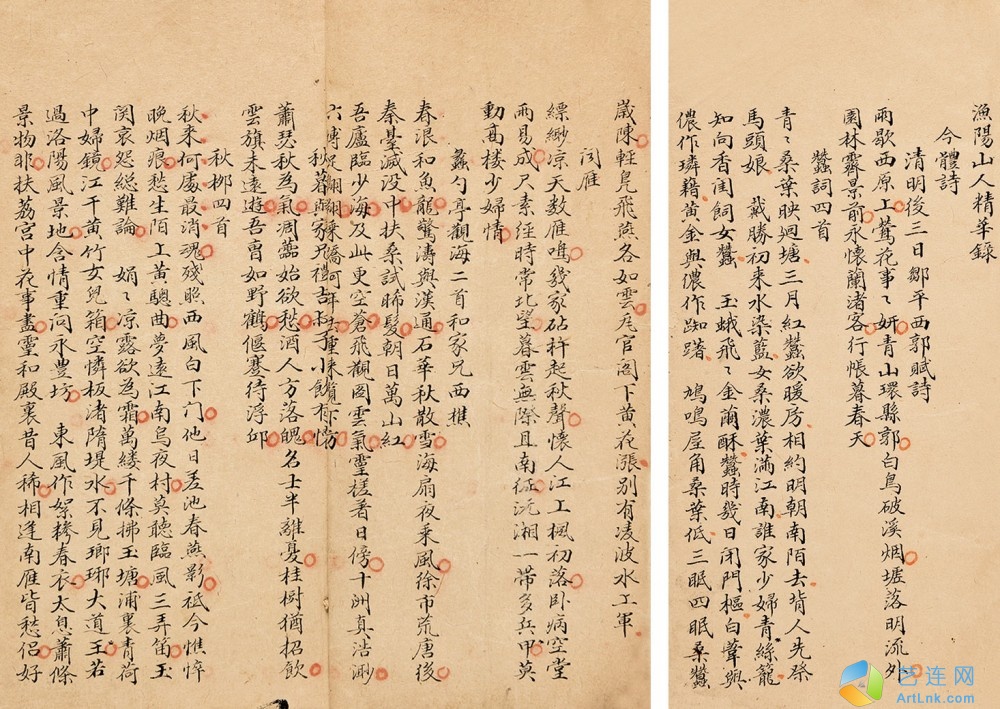 漁陽山人精華錄
今體詩
清明後三日鄒平西郭賦詩
雨歇西原上鶯花事〻妍青山環縣郭白鳥破溪烟墟落明流外
園林霽景前永懷蘭渚客行帳暮春天
蠶詞四首
青〻桑葉映迴塘三月紅蠶欲暖房相約明朝南陌去背人先祭
馬頭娘 戴勝初來水染藍女桑濃葉滿江南誰家少婦青絲籠
知向香閨飼女蠶 玉蛾飛〻金繭酥蠶時幾日閉門樞白葦與
儂作璘藉黃金與儂作踟躇 鳩鳴屋角桑葉低三眠四眠桑蠶
歲陳輕鳧飛燕各如雲瓦官閣下黃花漲別有淩波水上軍
聞雁
縹緲凉天數雁鳴幾家砧杵起秋聲懷人江上楓初落臥病空堂
雨易成尺素經時常北望暮雲無際且南征沅湘一帶多兵甲莫
動高樓少婦情
蠡勺亭觀海二首和家兄西樵
春浪和魚龍驚濤與漢通石華秋散雪海扇夜乘風徐市荒唐後
秦臺滅沒中扶桑試晞髮朝日萬山紅
吾廬臨少海及此更空蒼飛觀圖雲氣靈槎著日傍十洲真浩渺
秋暮與家兄禮吉叔子小飲有懷
蕭瑟秋為氣凋蘦始欲愁酒人方落魄名士半離憂桂樹猶招飲
雲旗未遠遊吾胷如野鶴偃蹇待浮邱
秋栁四首
秋來何處最消魂殘照西風白下门他日差池春燕影祇今憔悴
晚烟痕愁生陌上黃驄曲夢遠江南烏夜村莫聽臨風三弄笛玉
関哀怨総難論 娟〻凉露欲為霜萬縷千條拂玉塘浦裏青荷
中婦鏡江干黃竹女兒箱空憐板渚隋堤水不見瑯琊大道王若
過洛陽風景地含情重问永豊坊 東風作絮糝春衣太息蕭條
景物非扶荔宮中花事盡靈和殿裏昔人稀相逢南雁皆愁侶好
艺连网
ArtLnk.com